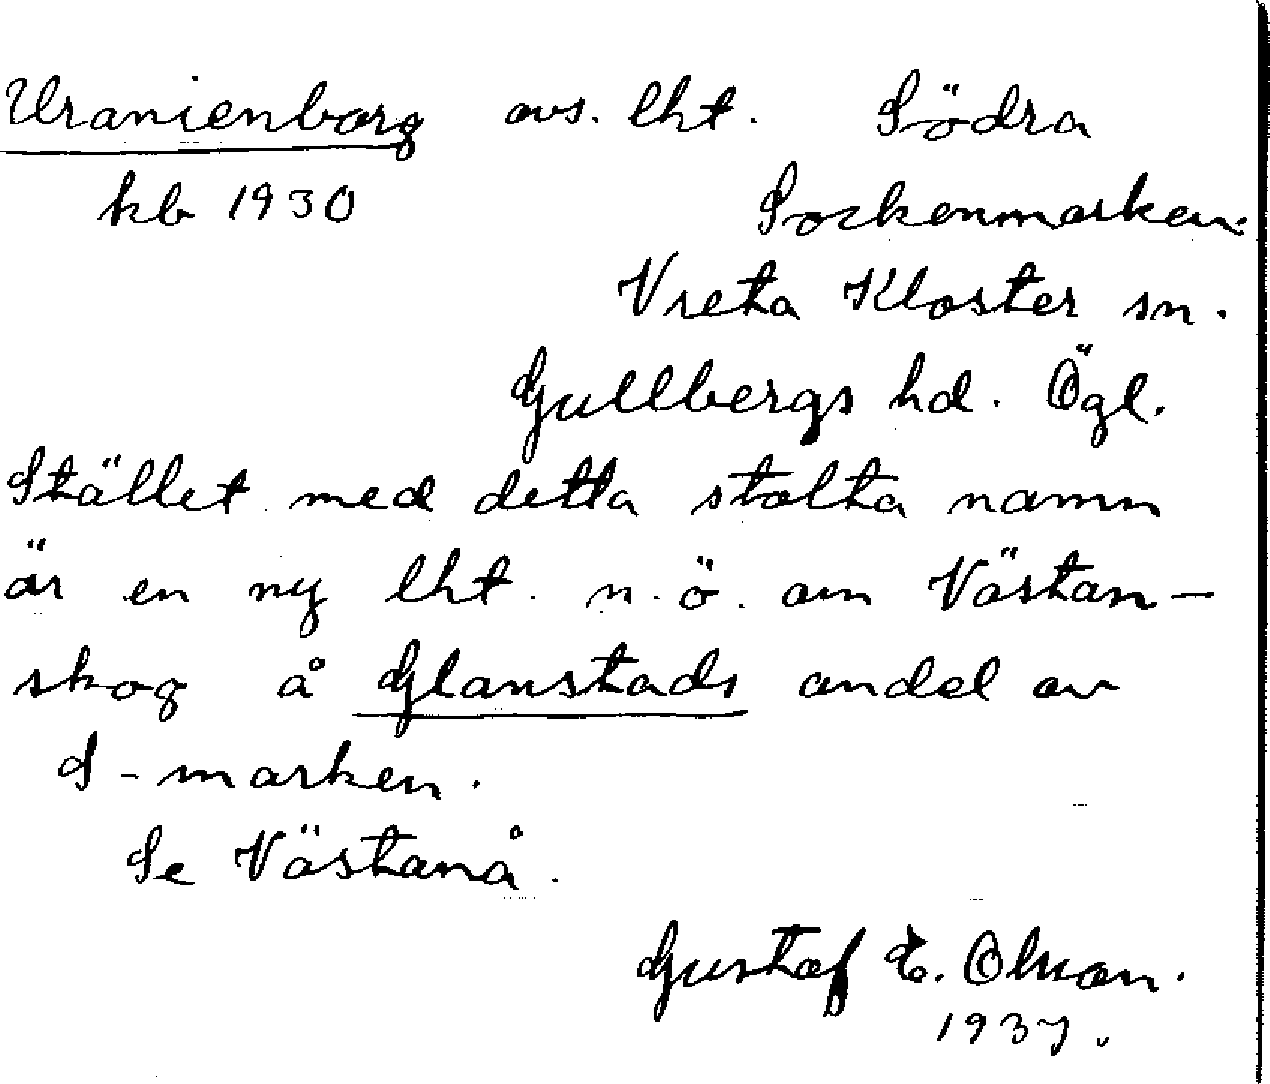 Uranienborg avs. lht. Södra
kb 1930 Sockenmarken.
Vreta Kloster sn.
Gullbergs hd. Ögl.
Stället med detta stolta namn
är en ny lht. n.ö. om Västan-
skog å Glanstads andel av
S-marken.
Se Västanå.
Gustaf E. Olsson.
1937.